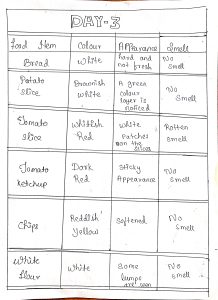 DAY-3
Food Item Colour Appearance Smell
Bread White hard and not fresh No Smell
Potato slice Brownish white A green colour layer is noticed No Smell
Tomato slice Whitish Red White patches on the slices Rotten Smell
Tomato ketchup Dark Red Sticky Appearance No Smell
Chips Reddish Yellow Softened No Smell
White flour White Some lumps are seen No Smell